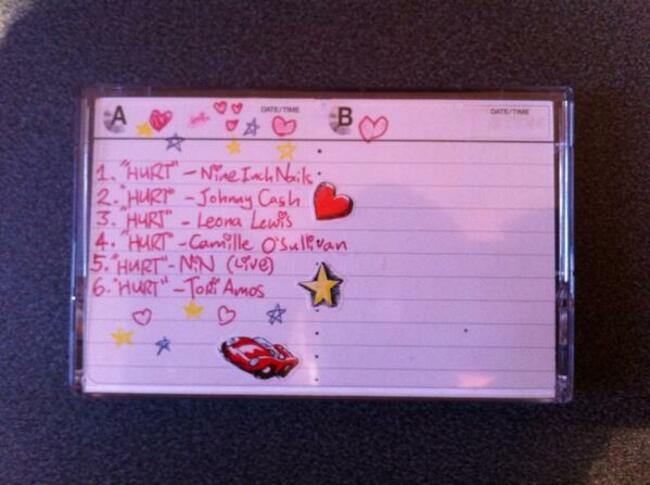 A DATE/TIME B DATE/TIME
1. "HURT" - Nine Inch Nails
2. "HURT" - Johnny Cash
3. "HURT" - Leona Lewis
4. "HURT" - Camille O'Sullivan
5. "HURT" - NiN (Live)
6. "HURT" - Tori Amos